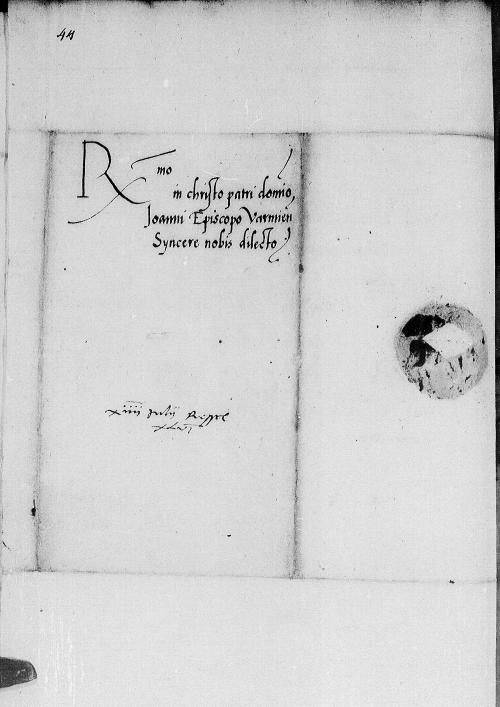 44
Rmo
in christo patri domio,
Joanni Episcopo Varmien
Syncere nobis dilecto
xiiii Julij Ressel